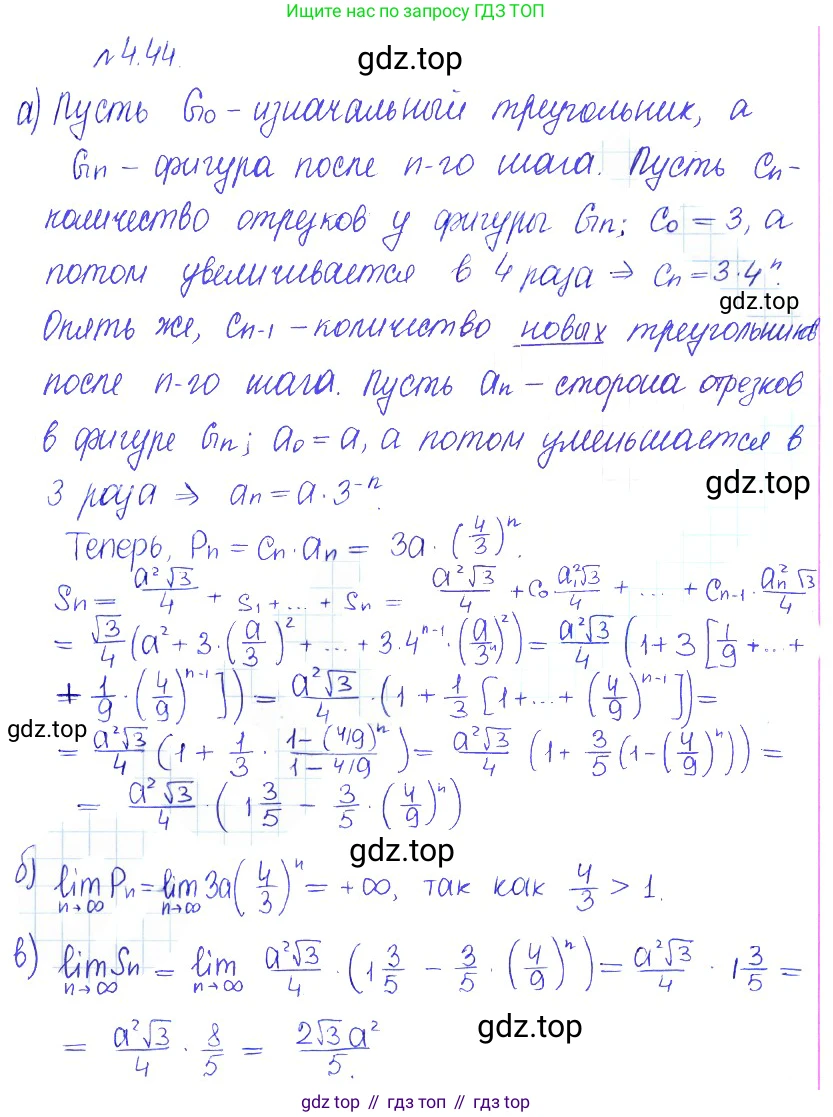 Ищите нас по запросу ГДЗ ТОП
№4.44.
gdz.top
а) Пусть G₀ - изначальный треугольник, а
Gn - фигура после n-го шага. Пусть Cn -
количество отрезков у фигуры Gn; C₀ = 3, а
потом увеличивается в 4 раза ⇒ Cn = 3·4ⁿ.
gdz.top
Опять же, Cn-1 - количество новых треугольников
после n-го шага. Пусть an - сторона отрезков
в фигуре Gn; a₀ = a, а потом уменьшается в
gdz.top
3 раза ⇒ an = a·3⁻ⁿ.
Теперь, Pn = Cn·an = 3a·(4/3)ⁿ.
Sn = a²√3/4 + S₁ + ... + Sn = a²√3/4 + C₀ a₁²√3/4 + ... + Cn-1 · an²√3/4
= √3/4 (a² + 3·(a/3)² + ... + 3·4ⁿ⁻¹·(a/3ⁿ)²) = a²√3/4 (1 + 3 [1/9 + ... +
+ 1/9 · (4/9)ⁿ⁻¹]) = a²√3/4 · (1 + 1/3 [1 + ... + (4/9)ⁿ⁻¹]) =
gdz.top
= a²√3/4 (1 + 1/3 · 1-(4/9)ⁿ/1-4/9) = a²√3/4 (1 + 3/5 (1-(4/9)ⁿ)) =
= a²√3/4 · (1 3/5 - 3/5 · (4/9)ⁿ)
gdz.top
б) lim n→∞ Pn = lim n→∞ 3a(4/3)ⁿ = +∞, так как 4/3 > 1.
в) lim n→∞ Sn = lim n→∞ a²√3/4 · (1 3/5 - 3/5 · (4/9)ⁿ) = a²√3/4 · 1 3/5 =
= a²√3/4 · 8/5 = 2√3a²/5.
gdz.top
gdz top // гдз топ // gdz top